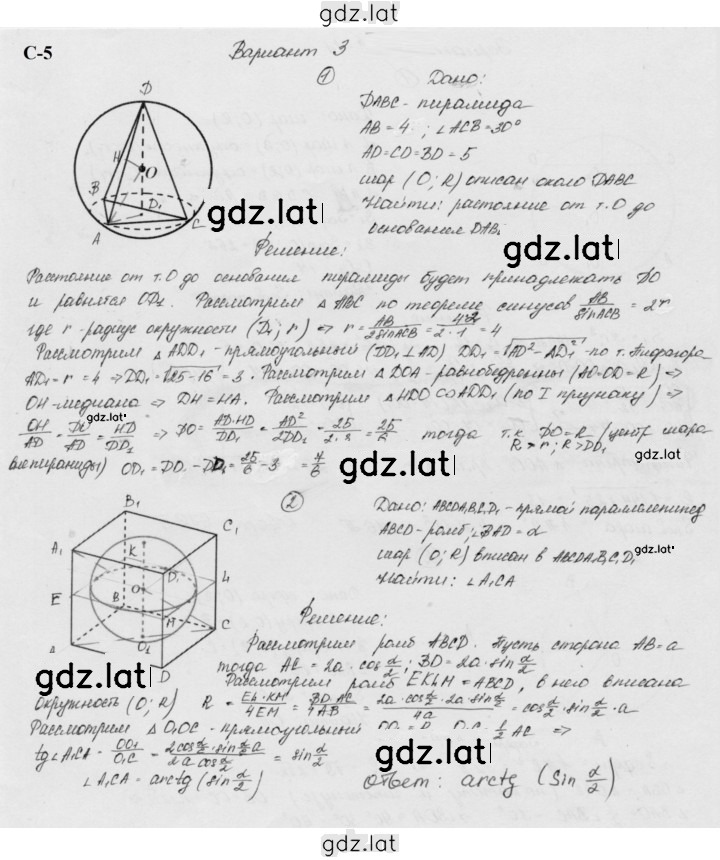 gdz.lat
С-5
Вариант 3
①
Дано:
DABC - пирамида
AB = 4 ; ∠ACB = 30°
AD = CD = BD = 5
шар (O; R) описан около DABC
Найти: растояние от т. О до
основания DABC
D
H
O
B
D₁
A
C
gdz.lat
gdz.lat
Решение:
Расстояние от т. О до основания пирамиды будет принадлежать DO
и равнятся OD₁. Рассмотрим △ ABC по теореме синусов AB/sin ACB = 2r
где r - радиус окружности (D₁; r) ⇒ r = AB/2sinACB = 4·2/2·1 = 4
Рассмотрим △ ADD₁ - прямоугольный (DD₁ ⊥ AD) DD₁ = √AD² - AD₁² - по т. Пифагора
AD₁ = r = 4 ⇒ DD₁ = √25 - 16 = 3. Рассмотрим △ DOA - равнобедренный (AO = OD = R) ⇒
OH - медиана ⇒ DH = HA. Рассмотрим △HDO ∽ ADD₁ (по I признаку) ⇒
gdz.lat
OH/AD = DO/AD = HD/DD₁ ⇒ DO = AD·HD/DD₁ = AD²/2DD₁ = 25/2·3 = 25/6 тогда т.к. DO = R (центр шара
R > r; R > DD₁
вне пирамиды) OD₁ = DO - DD₁ = 25/6 - 3 = 7/6
gdz.lat
②
Дано: ABCDA₁B₁C₁D₁ - прямой параллелепипед
ABCD - ромб; ∠BAD = α
шар (O; R) вписан в ABCDA₁B₁C₁D₁
Найти: ∠A₁CA
gdz.lat
B₁
C₁
A₁
K
D₁
L
E
O
B
M
C
A
O₁
D
gdz.lat
Решение:
Рассмотрим ромб ABCD. Пусть сторона AB = a
тогда AC = 2a · cos α/2; BD = 2a · sin α/2
Рассмотрим ромб EKLM = ABCD, в него вписана
gdz.lat
окружность (O; R) R = EL·KM/4EM = BD·AC/4AB = 2a·cos α/2·2a·sin α/2/4a = cos α/2 · sin α/2 · a
Рассмотрим △ O₁OC - прямоугольный
O₁C = 1/2 AC ⇒
tg∠A₁CA = OO₁/O₁C = 2cos α/2 · sin α/2 a/2a cos α/2 = sin α/2
gdz.lat
∠A₁CA = arctg (sin α/2)
Ответ: arctg (Sin α/2)
gdz.lat